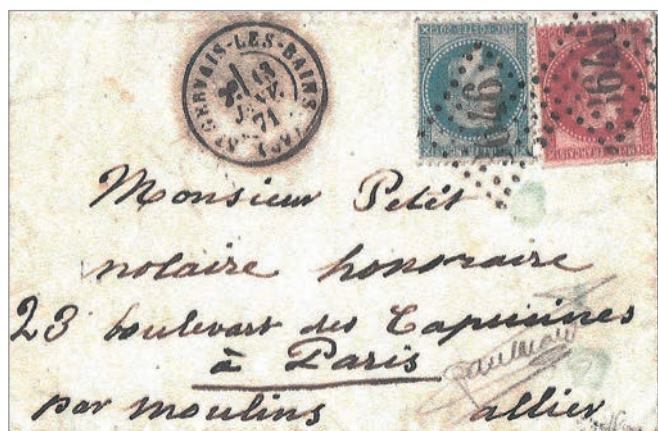 ST GERVAIS-LES-BAINS
13
JANV.
71
Monsieur Petit
notaire honoraire
23 boulevart des Capucines
à Paris
par moulins allier